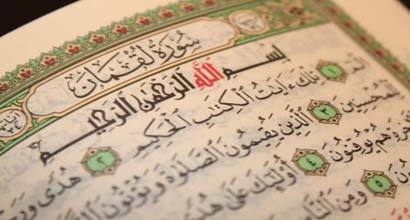 سُورَةُ لُقْمَانَ
بِسْمِ اللَّهِ الرَّحْمَٰنِ الرَّحِيمِ
الٓمٓ ١ تِلْكَ ءَايَٰتُ ٱلْكِتَٰبِ ٱلْحَكِيمِ ٢ هُدًى
لِّلْمُحْسِنِينَ ٣ ٱلَّذِينَ يُقِيمُونَ ٱلصَّلَوٰةَ وَيُؤْتُونَ
هُمْ يُوقِنُونَ ٤ أُو۟لَٰٓئِكَ عَلَىٰ هُدًى
٥ وَمِنَ ٱلنَّاسِ